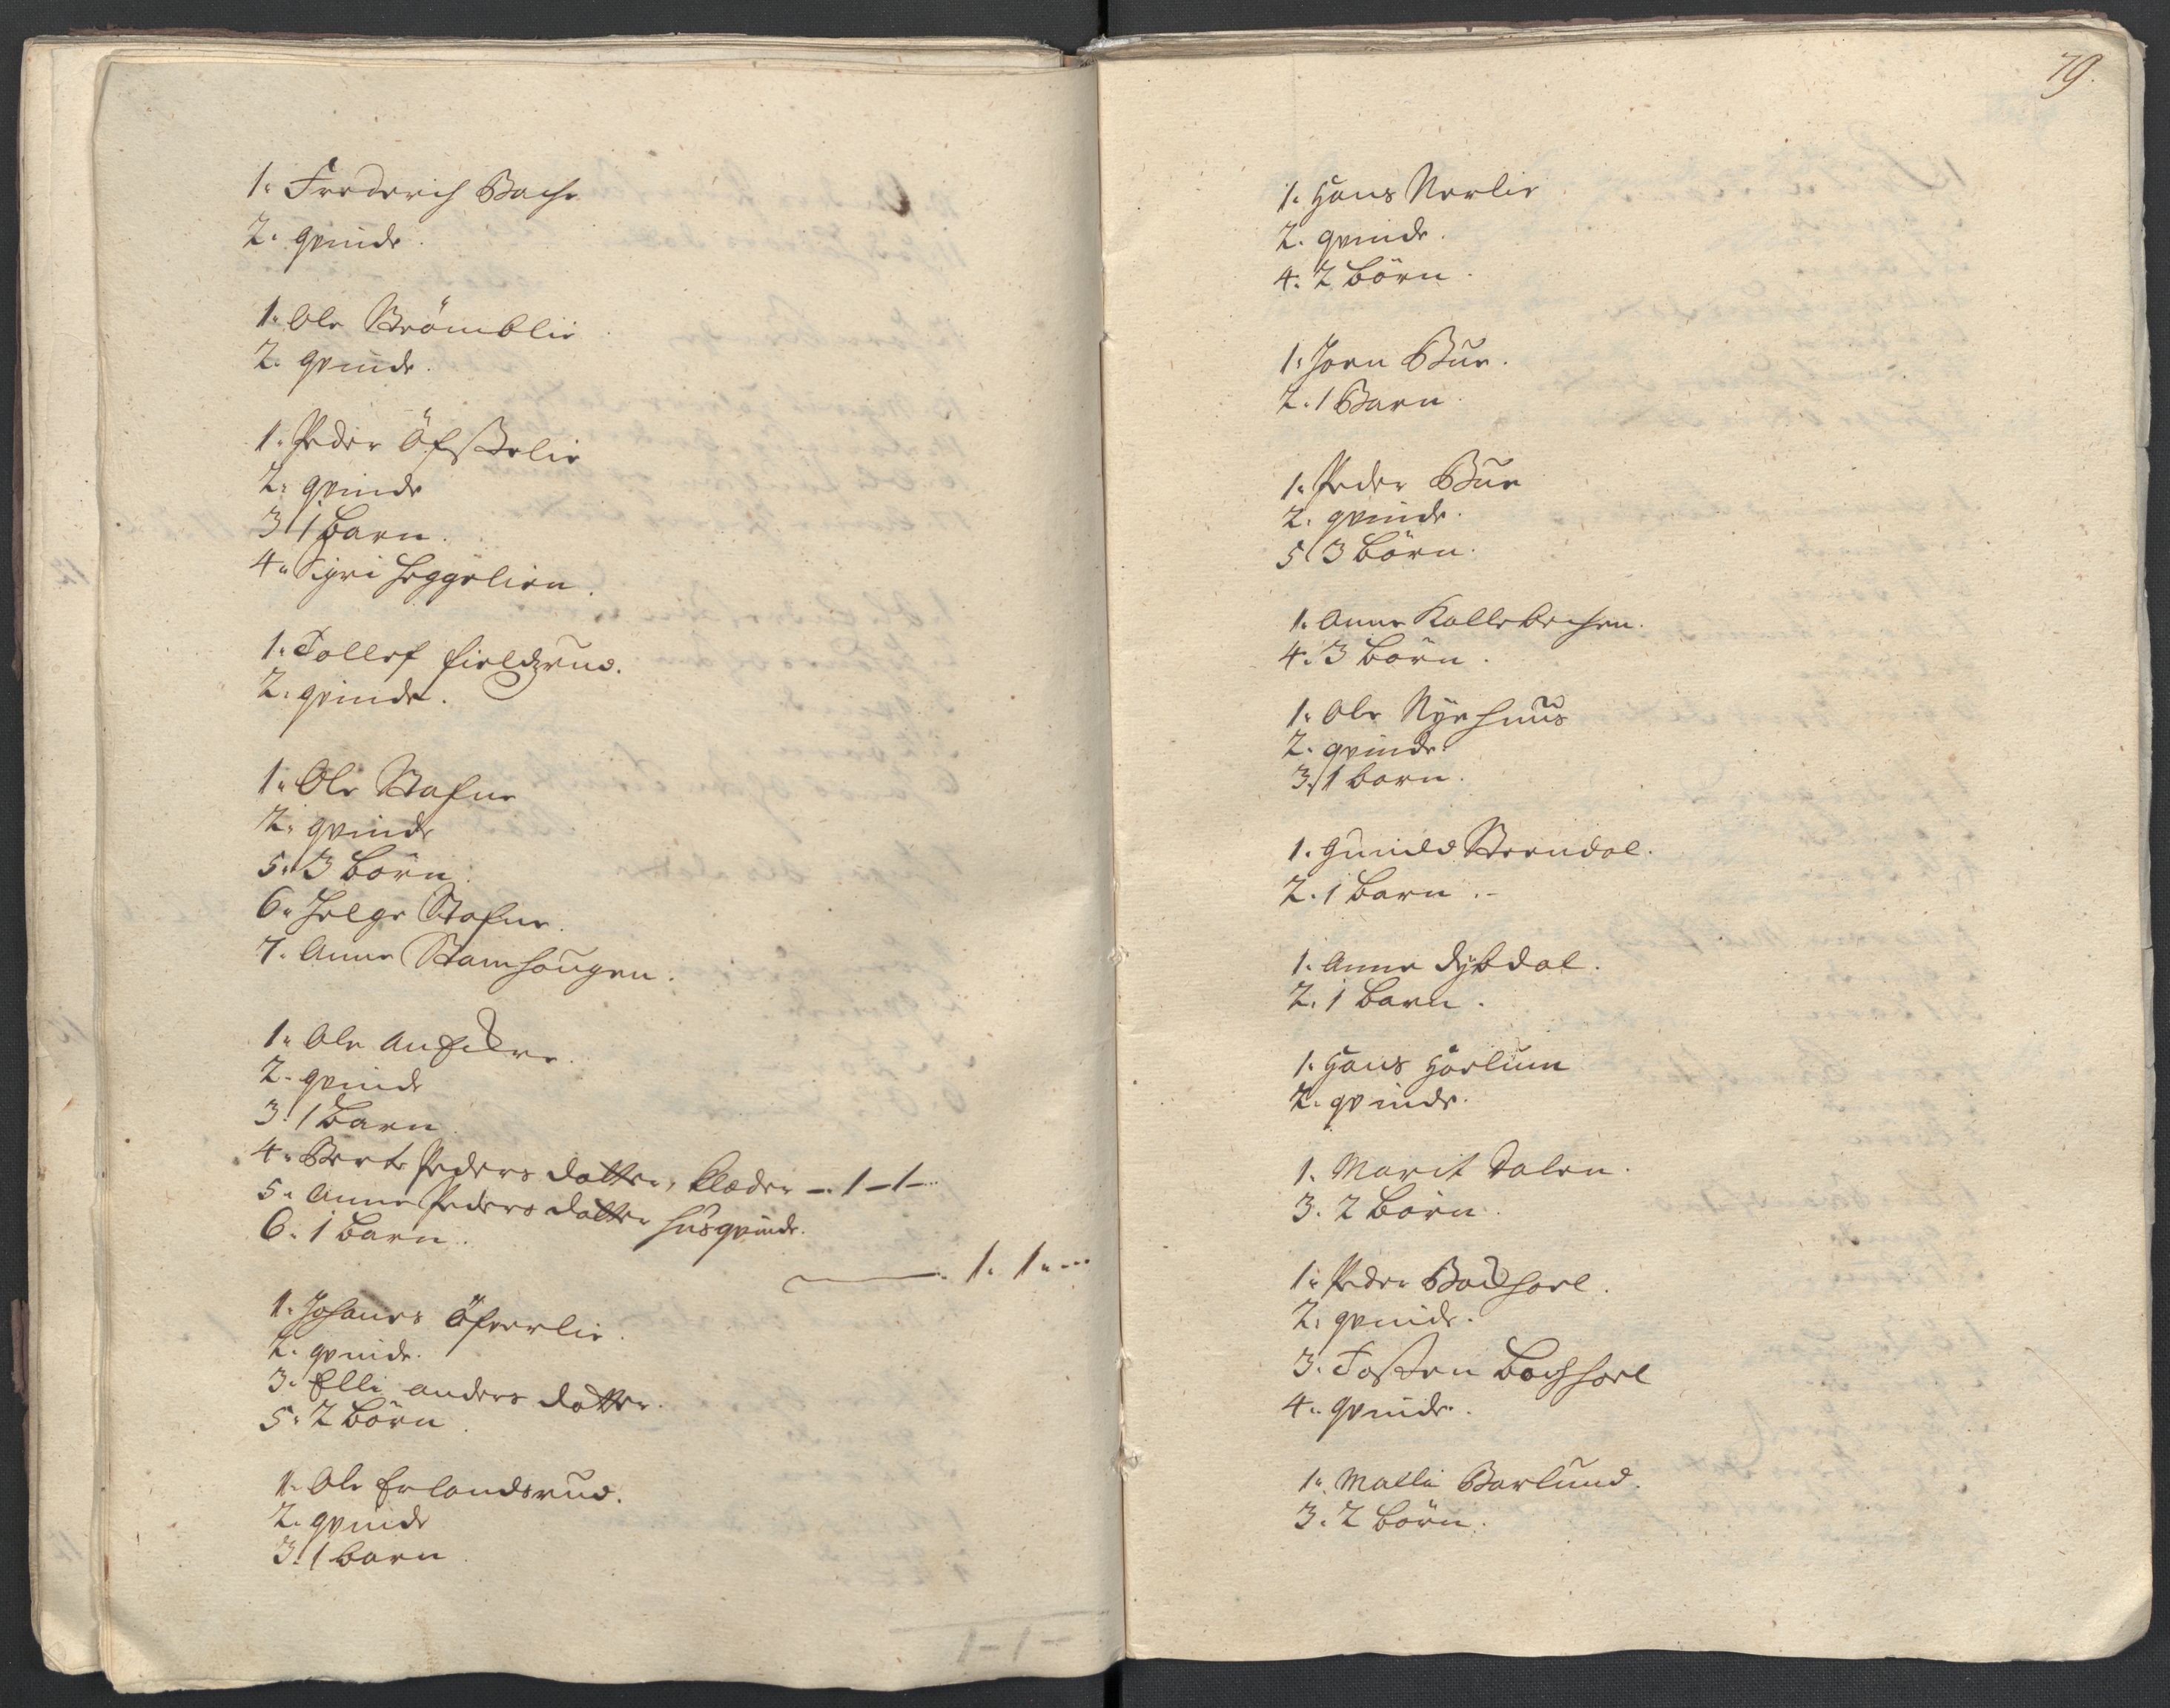 1. Frederich Bache
2. qvinde.
1. Ole Strömblie
2. qvinde.
1. Peder Öfstelie
2. qvinde
3. 1 barn.
4. Sigri Heggelien.
1. Tollef Fieldzrud.
2. qvinde.
1. Ole Stafne
2. qvinde
5. 3 börn.
6. Helge Stafne.
7. Anne Stamhougen.
1. Ole
2. qvinde
3. 1 barn
4. Berte Peders datter, klæder -. 1 - 1 -..
5. Anne Peders datter husqvinde.
6. 1 barn.
1. 1. ...
1. Johanes Öfverlie.
2. qvinde.
3. Elli anders datter.
5. 2 börn.
1. Ole Erlandsrud.
2. qvinde
3. 1 barn
- 1 - 1
79.
1. Hans Nerlie
2. qvinde.
4. 2 börn.
1. Joen Bue.
2. 1 Barn.
1. Peder Bue
2. qvinde.
5. 3 börn.
1. Anne Kallebechen.
4. 3 börn.
1. Ole Nyehuus
2. qvinde.
3. 1 barn.
1. Gunild Steendal.
2. 1 barn.-
1. Anne Dybdal.
2. 1 barn.
1. Hans Horlum
2. qvinde.
1. Marit Dalen.
3. 2 börn.
1. Peder Backhoel.
2. qvinde.
3. Tosten Bachhoel
4. qvinde.
1. Malli Barlund.
3. 2 börn.